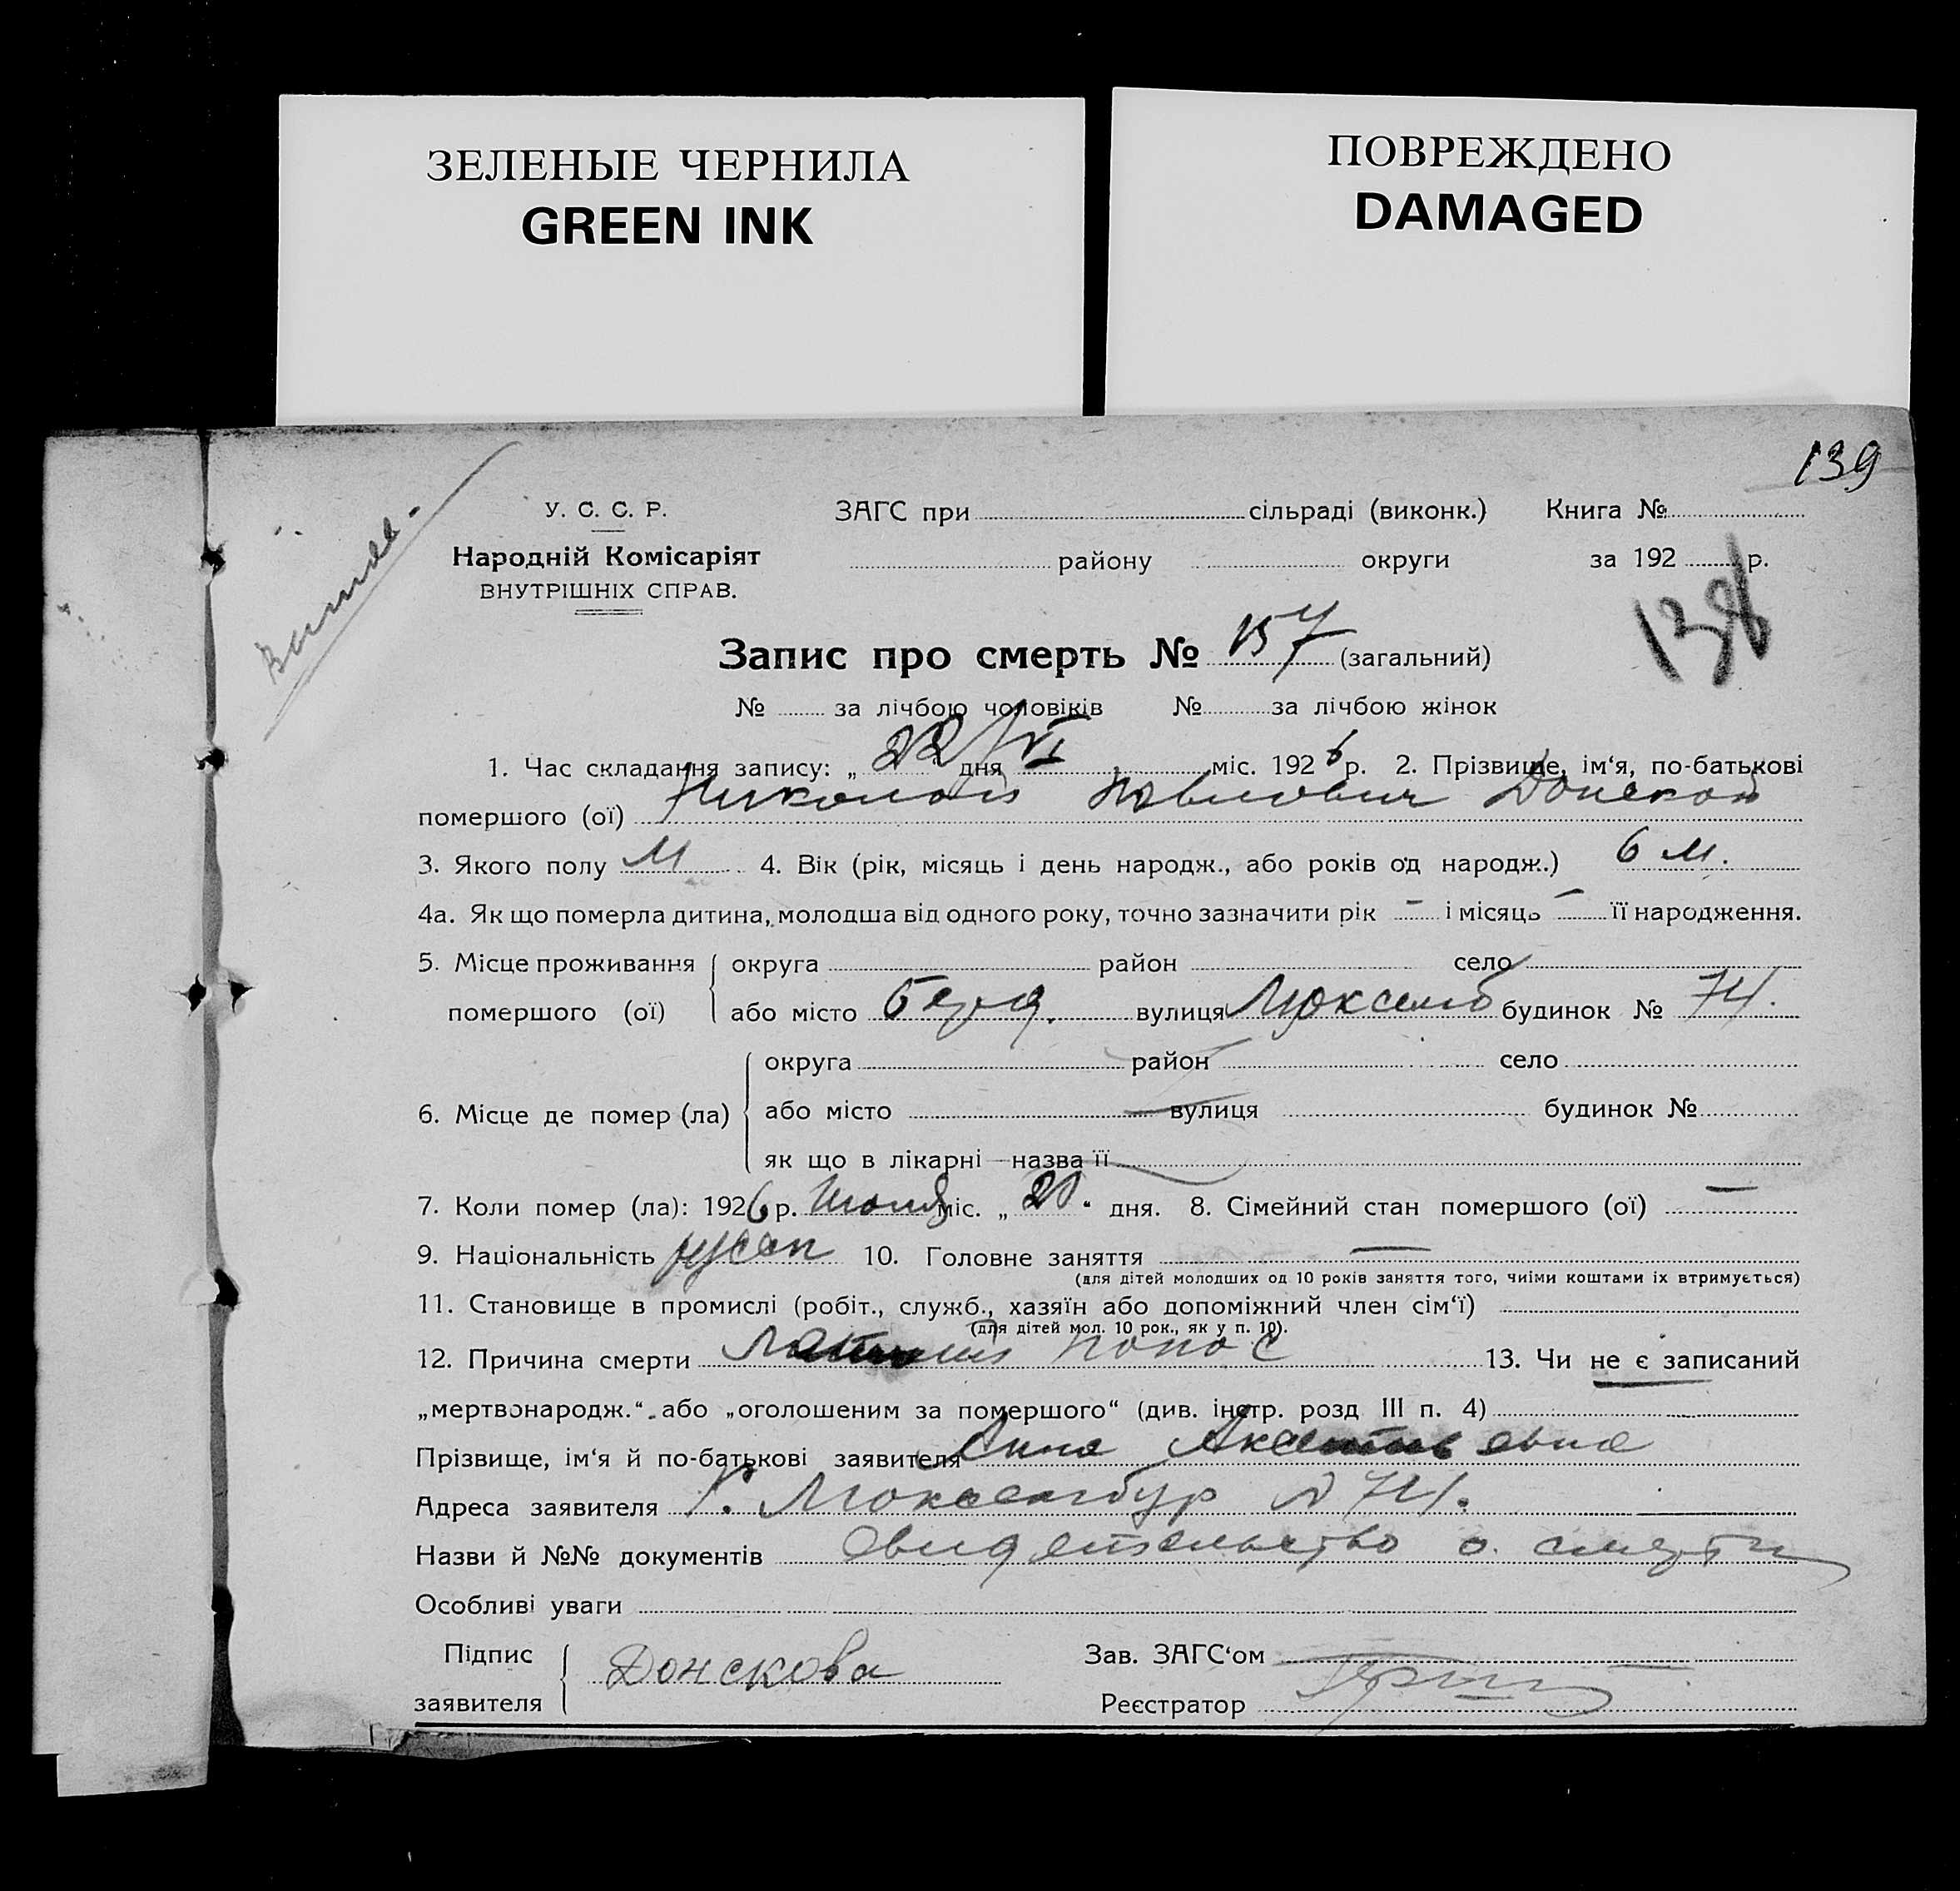 ЗЕЛЕНЫЕ ЧЕРНИЛА
GREEN INK
ПОВРЕЖДЕНО
DAMAGED
139
У. С. С. Р.
ЗАГС при сільраді (виконк.) Книга №
Народній Комісаріят
району округи за 192 р.
ВНУТРІШНІХ СПРАВ.
138
Запис про смерть № 157 (загальний)
№ за лічбою чоловіків № за лічбою жінок
1. Час складання запису: „ 22/VI дня міс. 1926 р. 2. Прізвище, ім‘я, по-батькові
помершого (ої) Николай Павлович Донской
3. Якого полу М 4. Вік (рік, місяць і день народж., або років од народж.) 6 м.
4а. Як що померла дитина, молодша від одного року, точно зазначити рік – і місяць – її народження.
5. Місце проживання округа район село
помершого (ої) або місто Берд. вулиця Люксемб будинок № 74.
округа район село
6. Місце де помер (ла) або місто вулиця будинок №
як що в лікарні —назва її
7. Коли помер (ла): 1926 р. Июня міс. „ 20 “ дня. 8. Сімейний стан помершого (ої) —
9. Національність русск 10. Головне заняття —
(для дітей молодших од 10 років заняття того, чиїми коштами їх втримується)
11. Становище в промислі (робіт., служб., хазяїн або допоміжний член сім‘ї)
(для дітей мол. 10 рок., як у п. 10).
12. Причина смерти понос 13. Чи не є записаний
„мертвонародж.“ або „оголошеним за помершого“ (див. інстр. розд III п. 4)
Прізвище, ім‘я й по-батькові заявителя Анна
Адреса заявителя Р. Люксембур № 74.
Назви й №№ документів свидетельство о смерти
Особливі уваги
Підпис
заявителя Донскова
Зав. ЗАГС‘ом
Реєстратор